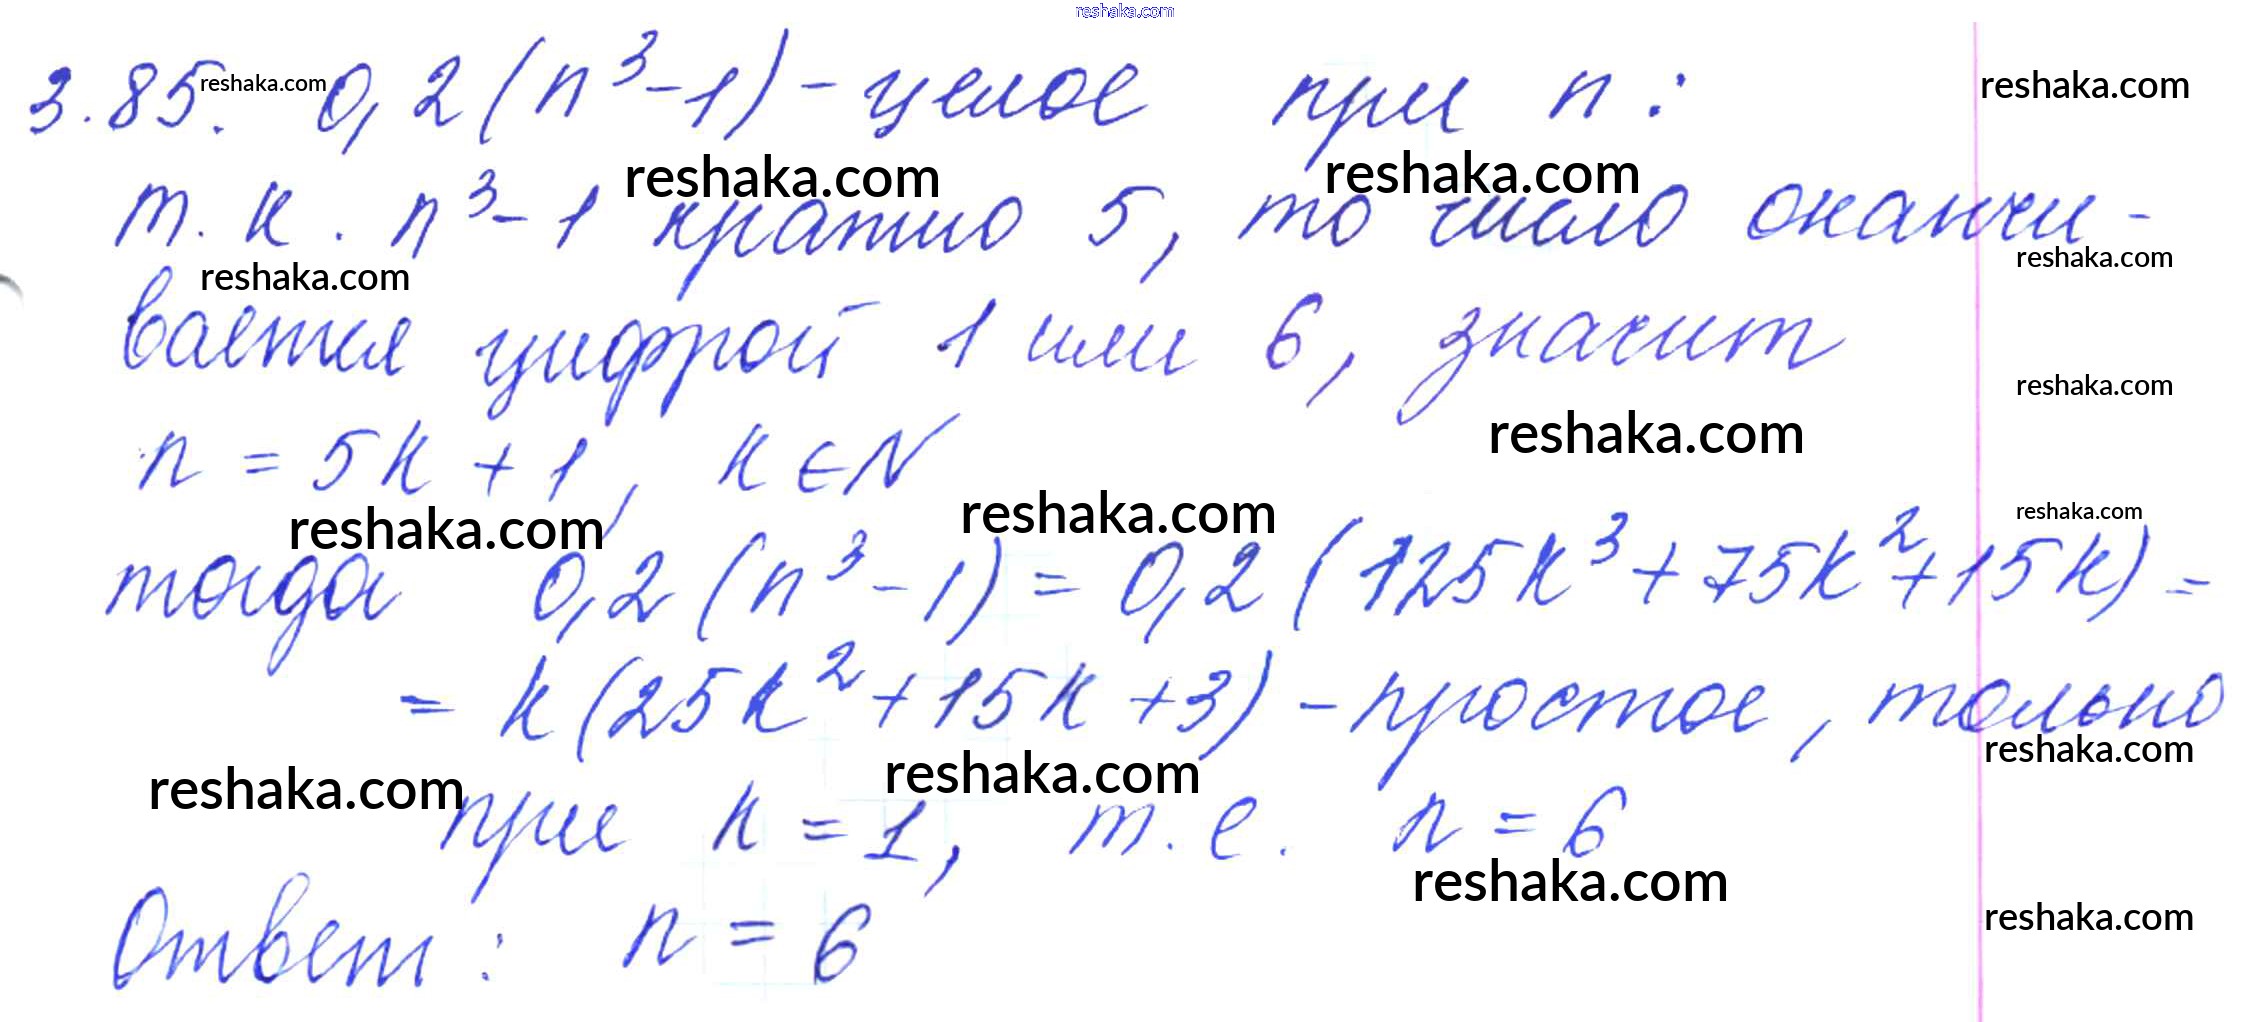 reshaka.com
3.85. reshaka.com 0,2(n³-1) - целое при n: reshaka.com
reshaka.com reshaka.com
т.к. n³-1 кратно 5, то число оканчи-
reshaka.com reshaka.com
вается цифрой 1 или 6, значит
reshaka.com
reshaka.com
n = 5k + 1, k ∈ N
reshaka.com reshaka.com reshaka.com
тогда 0,2(n³ - 1) = 0,2(125k³ + 75k² + 15k) =
= k(25k² + 15k + 3) - простое, только
reshaka.com reshaka.com reshaka.com
при k = 1, т.е. n = 6
reshaka.com
reshaka.com
Ответ: n = 6